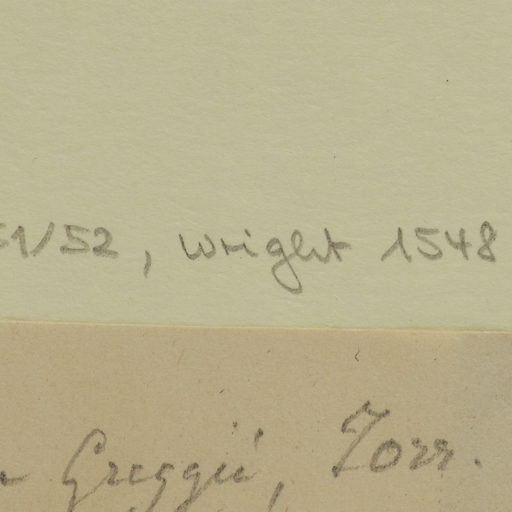 51/52, Wright 1548
Greggii, Torr.